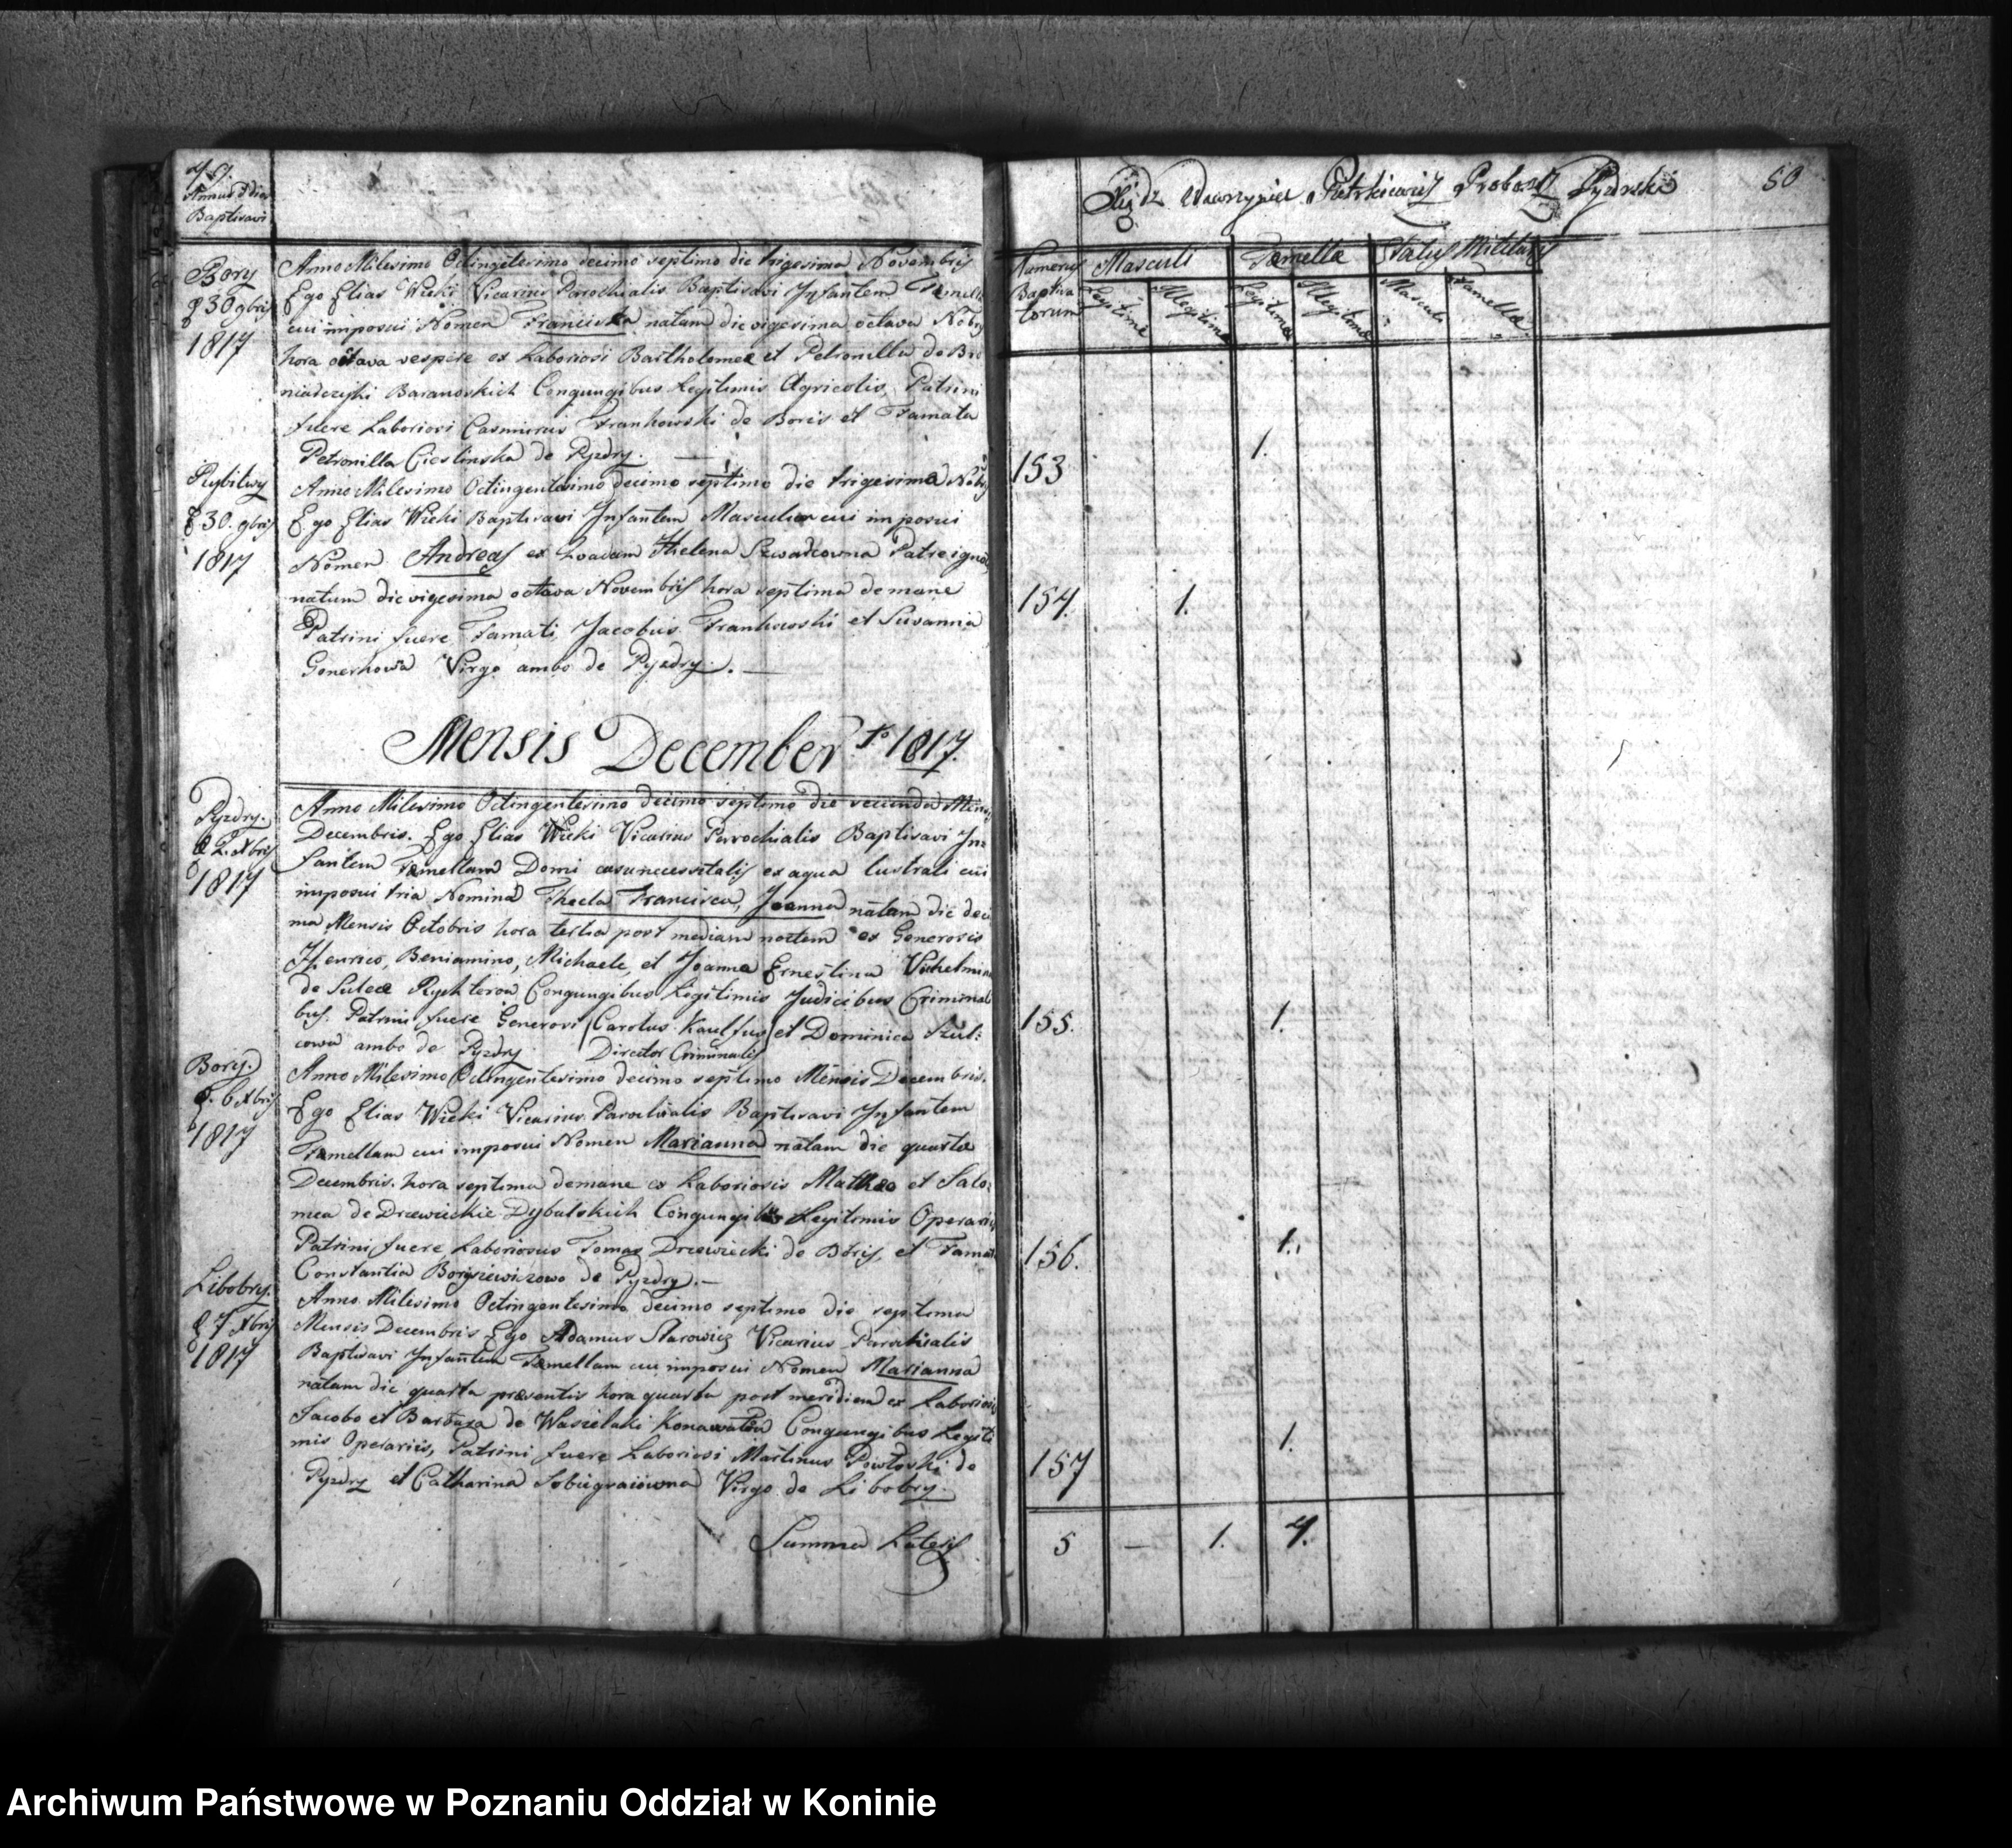 49.
Annus Dies
Baptisavi
Bory
d 30 9bris
1817
Anno Milesimo Octingetesimo decimo septimo die trigesima Novembris
Ego Elias Wicki Vicarius Parochialis Baptisavi Infantem
cui imposui Nomen Franciska natam die vigesima octava Nobris
hora octava vespere ex Laboriosi Bartholomea et Petronilla de
Baranoskich Congungibus Legitimis Agricolis, Patrini
fuere Laboriosi Casmirus Frankowski de Boris et Famata
Petronilla Cieslinska de Pyzdry.
Rybitwy
d 30. 9bris
1817
Anno Milesimo Octingentesimo decimo septimo die trigesima
Ego Elias Wicki Baptisavi Infantem Masculum cui imposui
Nomen Andreas ex Helena Patre
natum die vigesima octava Novembris hora septima demane
Patrini fuere Famati Jacobus Frankowski et Susanna
Virgo ambo de Pyzdry.
Mensis December 1817.
Pyzdry.
d 2. Xbris
1817
Anno Milesimo Octingentesimo decimo septimo die secunda
Decembris. Ego Elias Wicki Vicarius Parrochialis Baptisavi In=
fantem Famellam Domi casu necessitatis ex aqua lustrali cui
imposui tria Nomina Thecla Francisca, Joanna natam die deci
ma Mensis Octobris hora tertia post mediam noctem ex Generosis
Henrico, Beniamino, Michaele, et Joanna Ernestina
de Rychterow Congungibus Legitimis Judicibus Criminali
bus. Patrini fuere Generosi (Carolus Kaulfus) et Dominica Szul=
cowa ambo de Pyzdry Director Criminalis
Bory.
d. 6 Xbris
1817
Anno Milesimo Octingentesimo decimo septimo Mensis Decembris.
Ego Elias Wicki Vicarius Parochialis Baptisavi Infantem
Famellam cui imposui Nomen Marianna natam die quarta
Decembris. hora septima demane ex Laboriosis Matheo et Salo=
mea de Drzewieckie Dybalskich Congungibus Legitimis
Patrini fuere Laboriosus Tomas Drzewiecki de Boris, et
Constantia de Pyzdry.
Libobry.
d 7 Xbris
1817
Anno Milesimo Octingentesimo decimo septimo die septima
Mensis Decembris Ego Adamus Starowicz Vicarius Parochialis
Baptisavi Infantem Famellam cui imposui Nomen Marianna
natam die quarta praesentis hora quarta post meridiem ex
Jacobo et Barbara de Congungibus Legiti
mis Operariis, Patrini fuere Laboriosi Martinus de
Pyzdry et Catharina Virgo de Libobry.
Summa Lateris
50
Xiądz Wawrzyniec Pietrkiewicz Proboszcz Pyzdrski
Numerus
Baptisa
torum
Masculi
Famella
Status Militaris
Legitime
Illegitime
Legitime
Illegitime
Masculi
Famella
153
1.
154.
1.
155.
1.
156.
1.
157
1.
5
—
1.
4.
Archiwum Państwowe w Poznaniu Oddział w Koninie